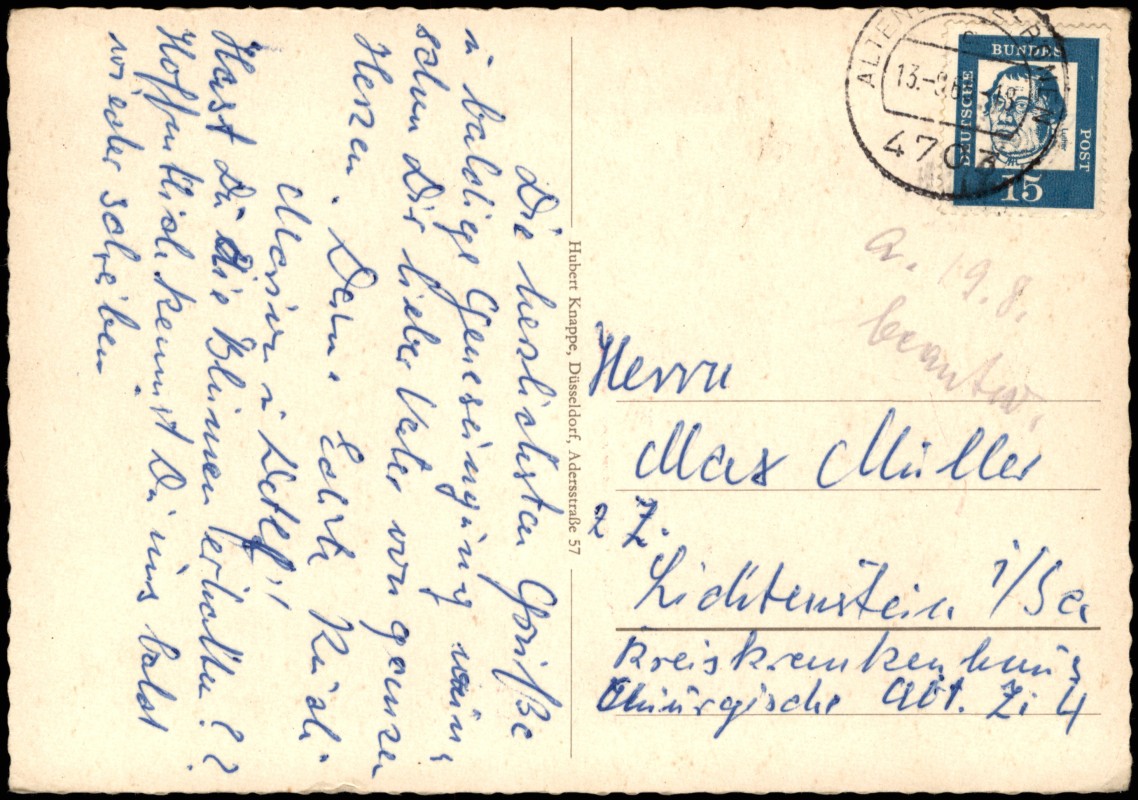 Die herzlichsten Grüße
u baldige Genesung wün-
schen Dir lieber Vater von ganzen
Herzen. Deine Edith Rudi
u Detlef!
Hast Du die Blumen erhalten??
Hoffentlich kannst Du uns bald
wieder schreiben
Hubert Knappe, Düsseldorf, Adersstraße 57
DEUTSCHE
BUNDES
POST
15
13.
4703
a. 19. 8.
beantw.
Herrn
Max Müller
z Z.
Lichtenstein i/Sa
Kreiskrankenhaus
Chirurgische Abt. Zi 4